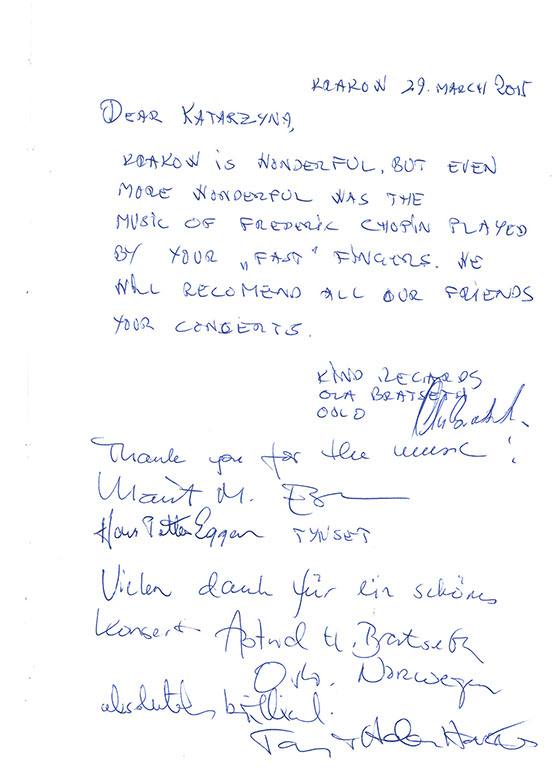 KRAKOW 29. MARCH 2015
DEAR KATARZYNA,
KRAKOW IS WONDERFUL, BUT EVEN
MORE WONDERFUL WAS THE
MUSIC OF FREDERIC CHOPIN PLAYED
BY YOUR „FAST" FINGERS. WE
WILL RECOMEND ALL OUR FRIENDS
YOUR CONCERTS.
KIND REGARDS
OLA BRATSETH
OSLO
Thank you for the music!
Marit M.
Hans Petter Eggen TYNSET
Vielen dank für ein schönes
Konsert Astrid H. Bratseth
Oslo. Norwegen
absolutely brilliant.
Helen